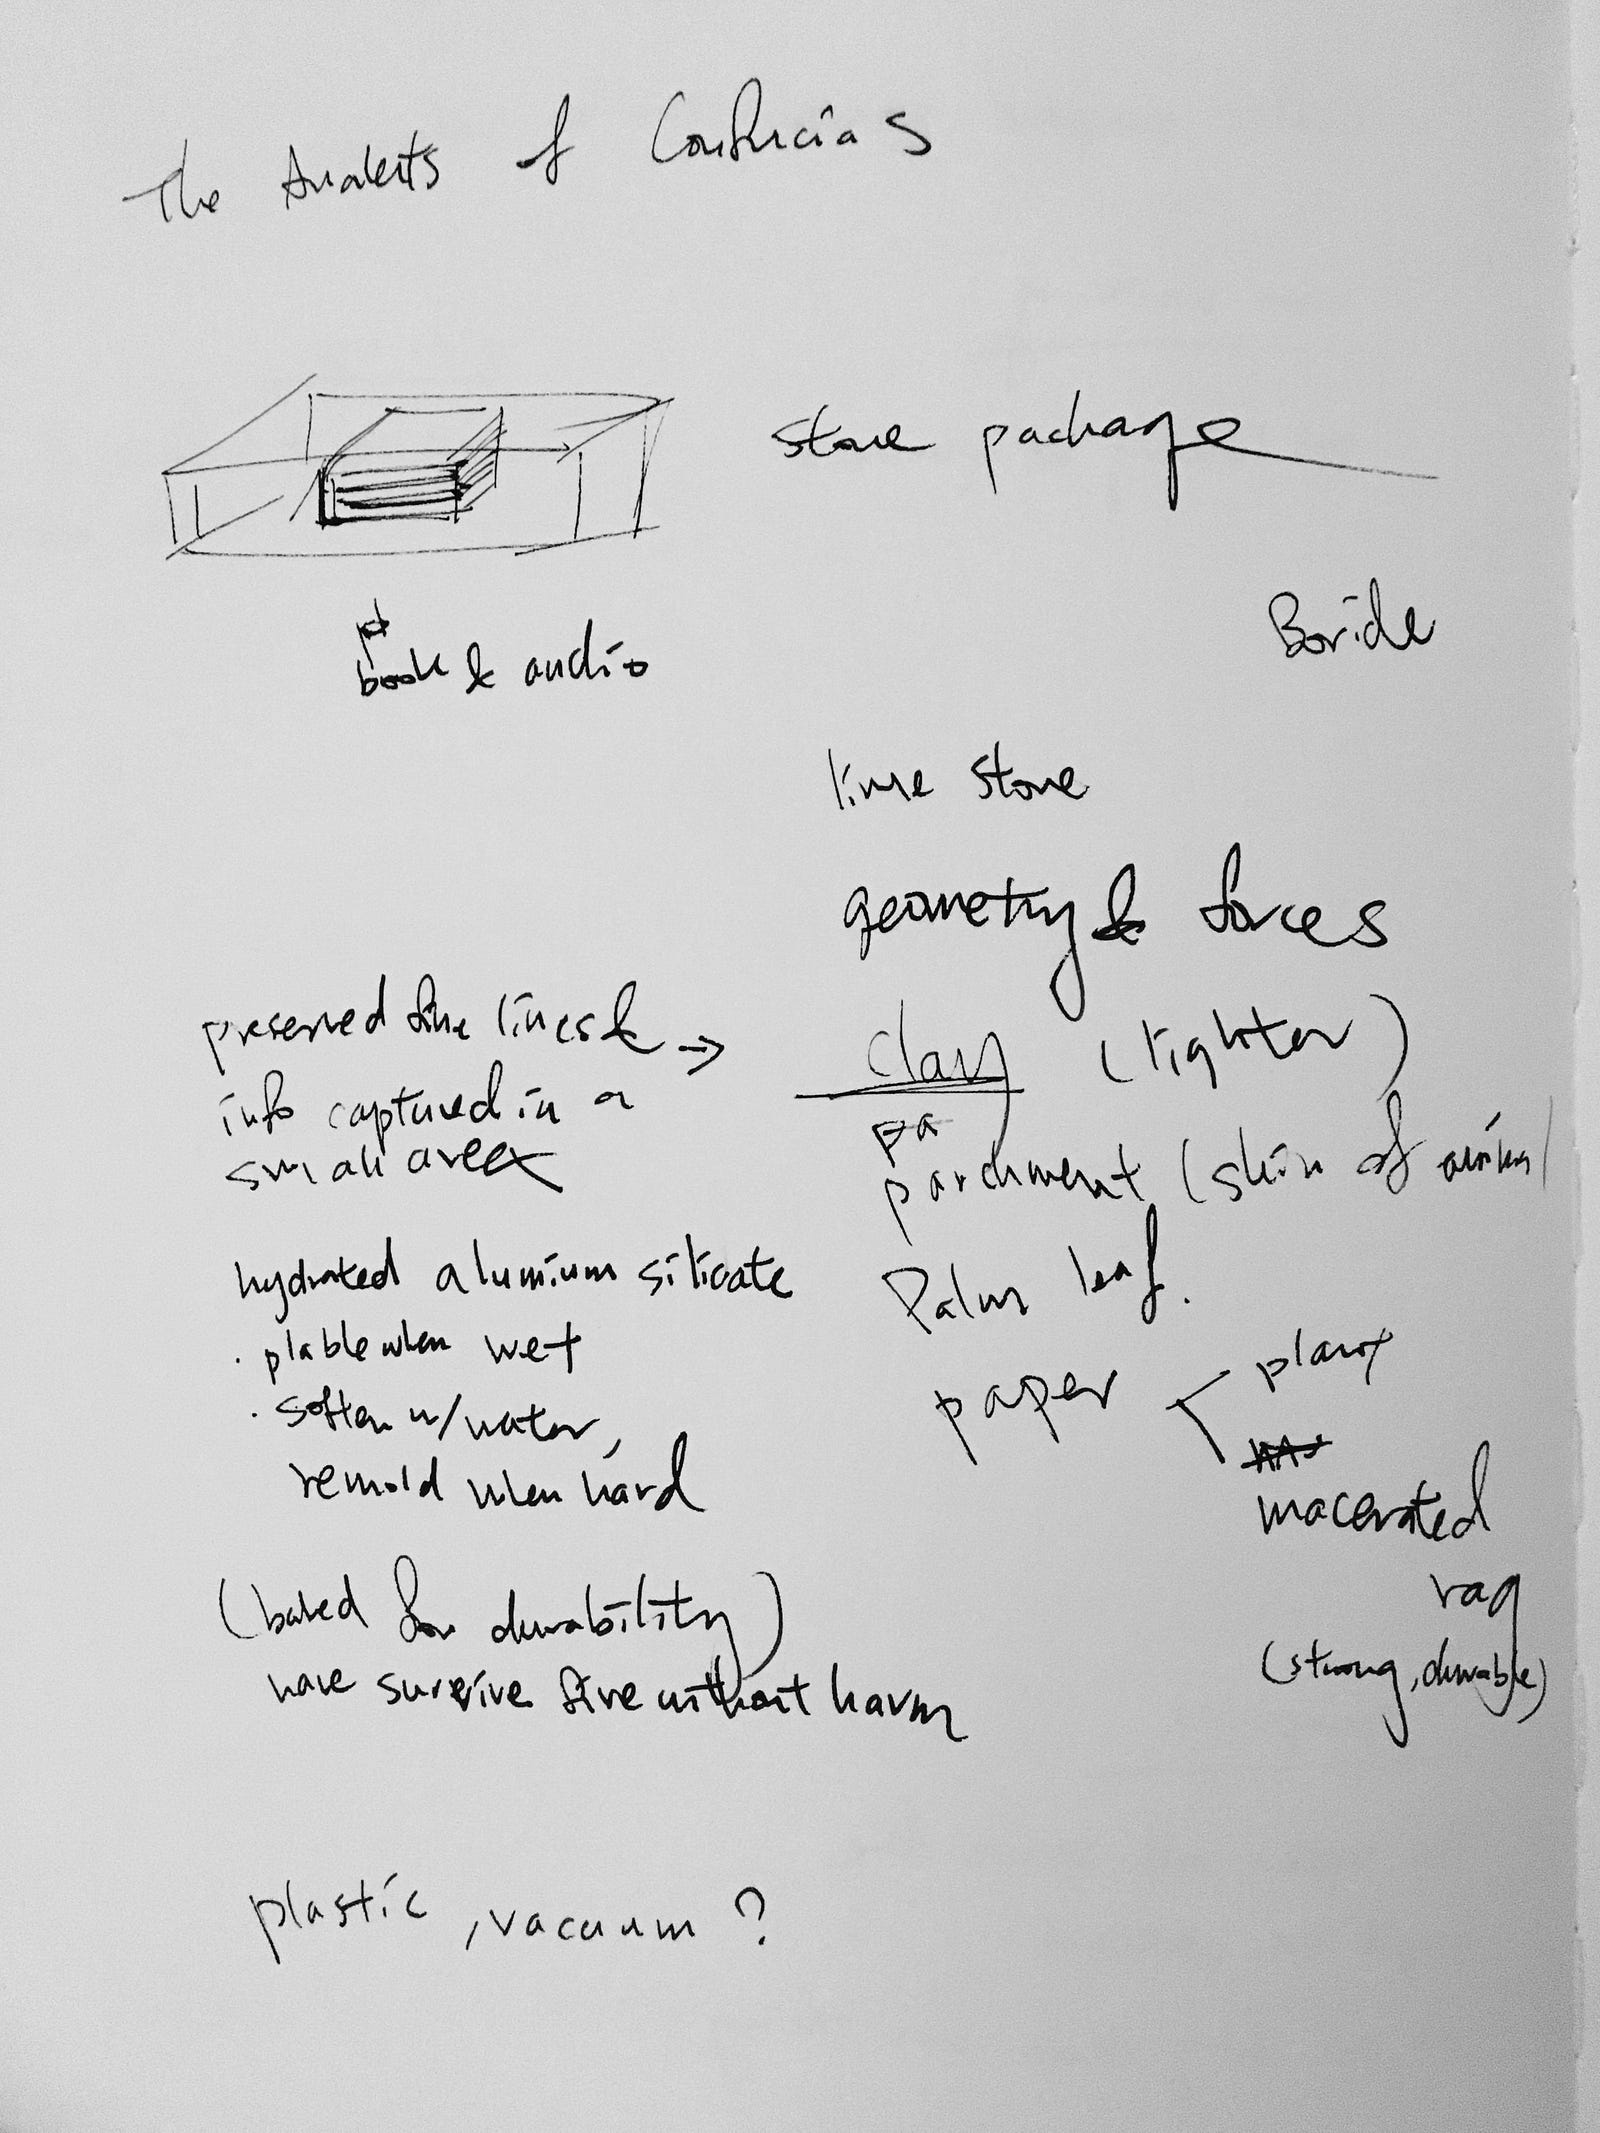 The Analects of Confucias
stone package
Boride
book & audio
lime stone
geometry & forces
preserved fine lines & →
info captured in a
small area
clay (lighter)
pa
parchment (skin of animal
hydrated alumium silicate
· plable when wet
· soften w/water,
remold when hard
Palm leaf.
paper
plant
macerated
rag
(strong, durable)
(baked for durability)
have survive fire without harm
plastic, vacuum?